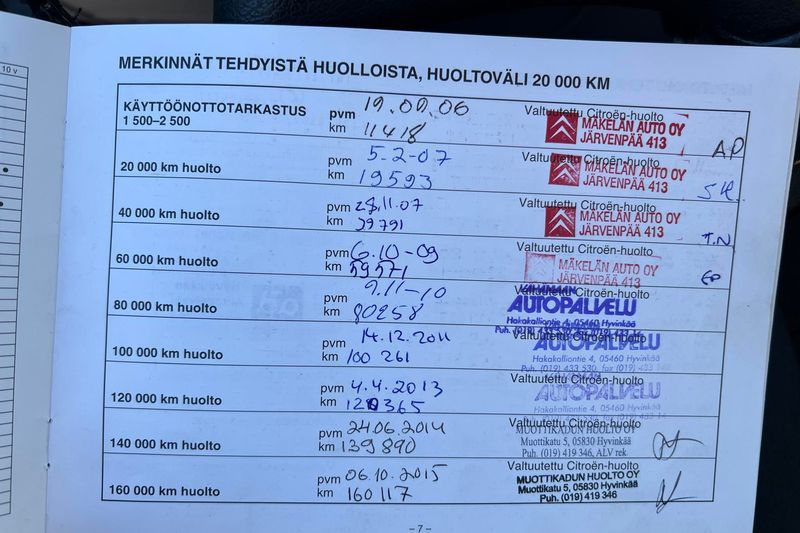 10 v
MERKINNÄT TEHDYISTÄ HUOLLOISTA, HUOLTOVÄLI 20 000 KM
KÄYTTÖÖNOTTOTARKASTUS pvm 19.09.06 Valtuutettu Citroën-huolto
1 500–2 500 km 11418 MÄKELÄN AUTO OY
JÄRVENPÄÄ 413 AP
20 000 km huolto pvm 5-2-07 Valtuutettu Citroën-huolto
km 19593 MÄKELÄN AUTO OY
JÄRVENPÄÄ 413
40 000 km huolto pvm 28.11.07 Valtuutettu Citroën-huolto
km 39791 MÄKELÄN AUTO OY
JÄRVENPÄÄ 413 T.N
60 000 km huolto pvm 6.10-09 Valtuutettu Citroën-huolto
km 59571 MÄKELÄN AUTO OY
JÄRVENPÄÄ 413
80 000 km huolto pvm 9.11-10 Valtuutettu Citroën-huolto
km 80258 AUTOPALVELU
Hakakalliontie 4, 05460 Hyvinkää
Puh. (019) 433 530,
100 000 km huolto pvm 14.12.2011 Valtuutettu Citroën-huolto
km 100 261 AUTOPALVELU
Hakakalliontie 4, 05460 Hyvinkää
Puh. (019) 433 530, fax (019) 433
120 000 km huolto pvm 4.4.2013 Valtuutettu Citroën-huolto
km 120365 AUTOPALVELU
Hakakalliontie 4, 05460 Hyvinkää
140 000 km huolto pvm 24.06.2014 Valtuutettu Citroën-huolto
km 139890 MUOTTIKADUN HUOLTO OY
Muottikatu 5, 05830 Hyvinkää
Puh. (019) 419 346, ALV rek.
160 000 km huolto pvm 06.10.2015 Valtuutettu Citroën-huolto
km 160117 MUOTTIKADUN HUOLTO OY
Muottikatu 5, 05830 Hyvinkää
Puh. (019) 419 346
– 7 –